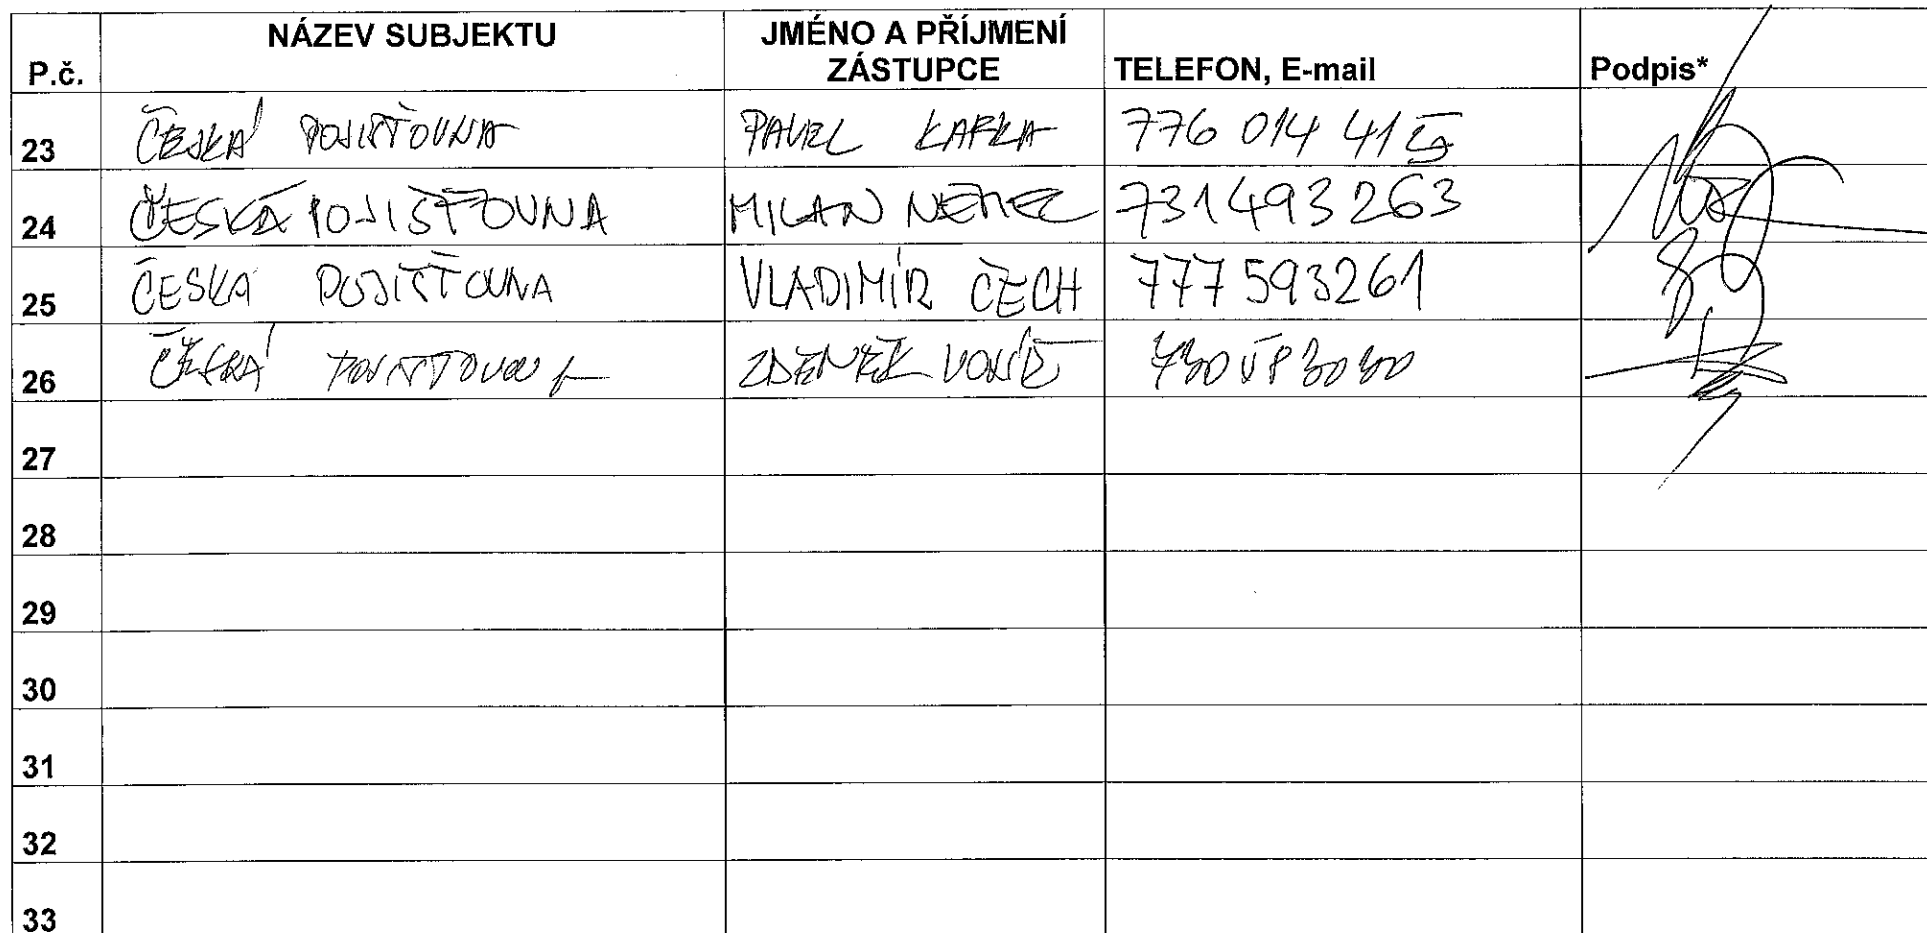 P.č. NÁZEV SUBJEKTU JMÉNO A PŘÍJMENÍ ZÁSTUPCE TELEFON, E-mail Podpis*
23 ČESKÁ POJIŠŤOVNA PAVEL KAFKA 776 014 41
24 ČESKÁ POJIŠŤOVNA MILAN NĚMEC 731 493 263
25 ČESKÁ POJIŠŤOVNA VLADIMÍR ČECH 777 593261
26 ČESKÁ POJIŠŤOVNA ZDENĚK
27
28
29
30
31
32
33